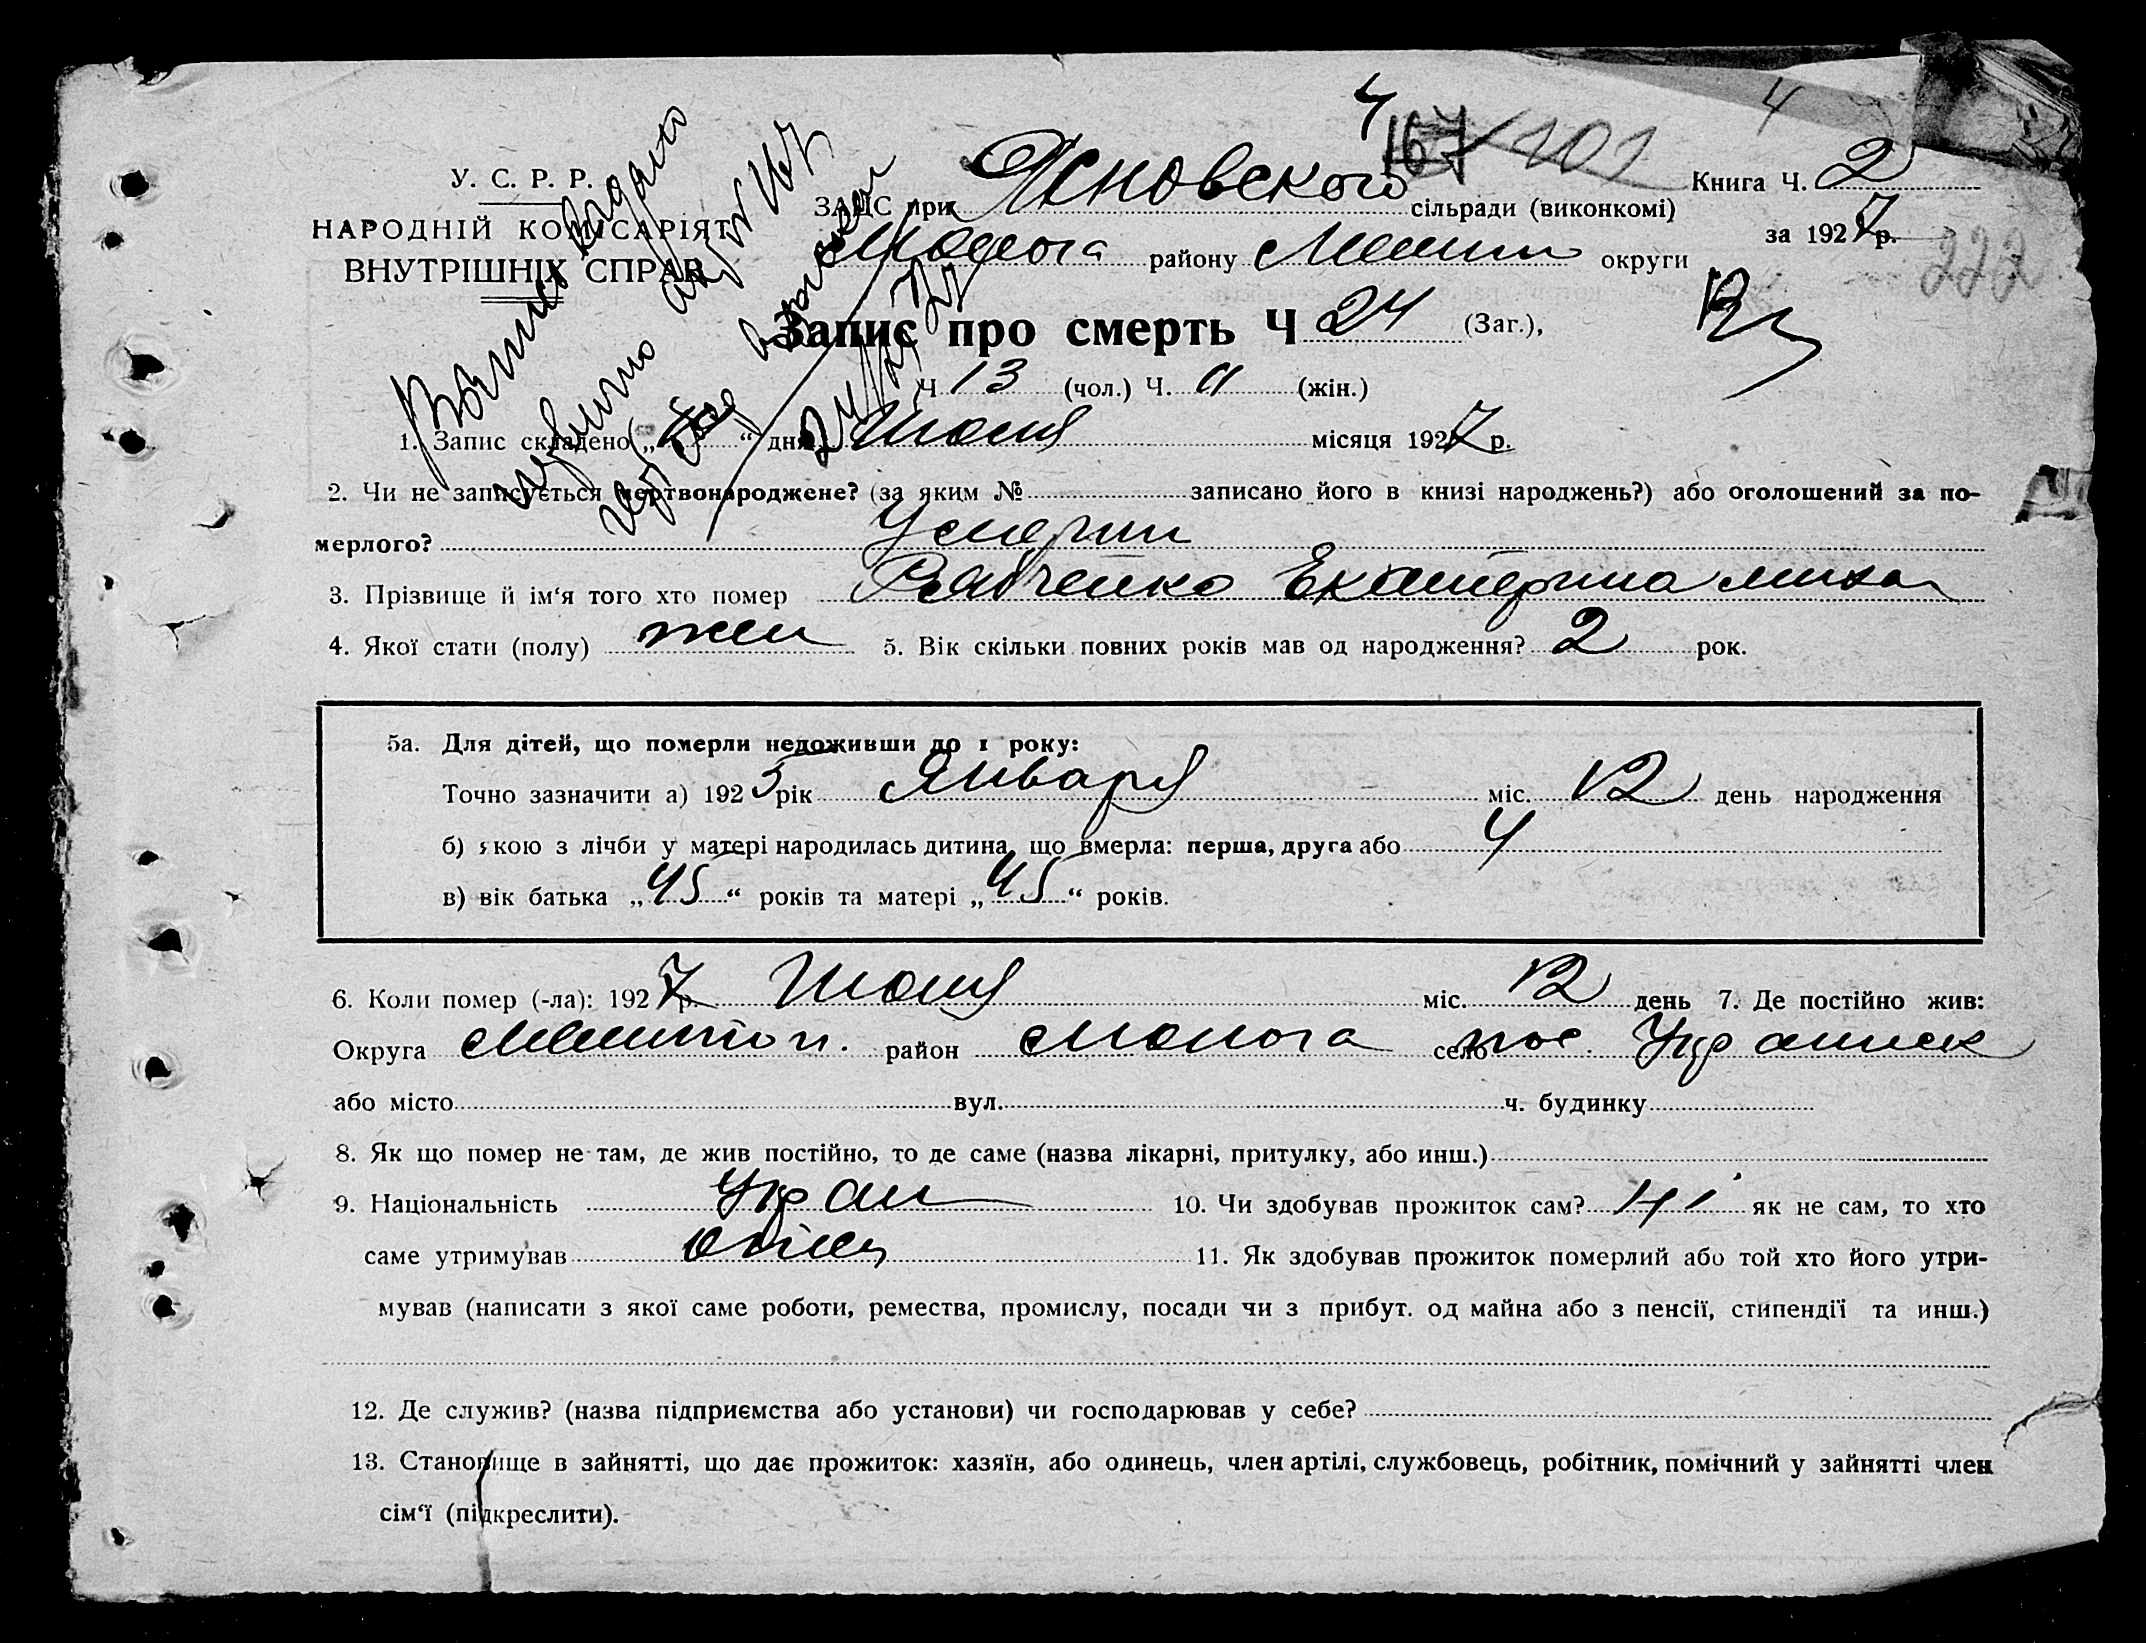 4
167 / 101
4
У. С. Р. Р.
НАРОДНІЙ КОМІСАРІЯТ
ВНУТРІШНІХ СПРАВ
ЗАЦС при Ясновского сільради (виконкомі)
Книга Ч. 2
за 1927 р.
222
району округи
Запис про смерть Ч 24 (Заг.),
Ч 13 (чол.) Ч. (жін.)
1. Запис складено „ “ дня Июля місяця 1927 р.
2. Чи не записується мертвонароджене? (за яким № записано його в книзі народжень?) або оголошений за по-
мерлого? Умерши
3. Прізвище й ім‘я того хто помер Рябченко Екатерина миха
4. Якої стати (полу) жен 5. Вік скільки повних років мав од народження? 2 рок.
5а. Для дітей, що померли недоживши до 1 року:
Точно зазначити а) 1925 рік Января міс. 12 день народження
б) якою з лічби у матері народилась дитина, що вмерла: перша, друга або 4
в) вік батька „45“ років та матері „45“ років.
6. Коли помер (-ла): 1927 р. Июля міс. 12 день 7. Де постійно жив:
Округа район село пос.
або місто вул. ч. будинку
8. Як що помер не там, де жив постійно, то де саме (назва лікарні, притулку, або инш.)
9. Національність Укр 10. Чи здобував прожиток сам? ні як не сам, то хто
саме утримував отец 11. Як здобував прожиток померлий або той хто його утри-
мував (написати з якої саме роботи, ремества, промислу, посади чи з прибут. од майна або з пенсії, стипендії та инш.)
12. Де служив? (назва підприємства або установи) чи господарював у себе?
13. Становище в зайнятті, що дає прожиток: хазяїн, або одинець, член артілі, службовець, робітник, помічний у зайнятті член
сім‘ї (підкреслити).